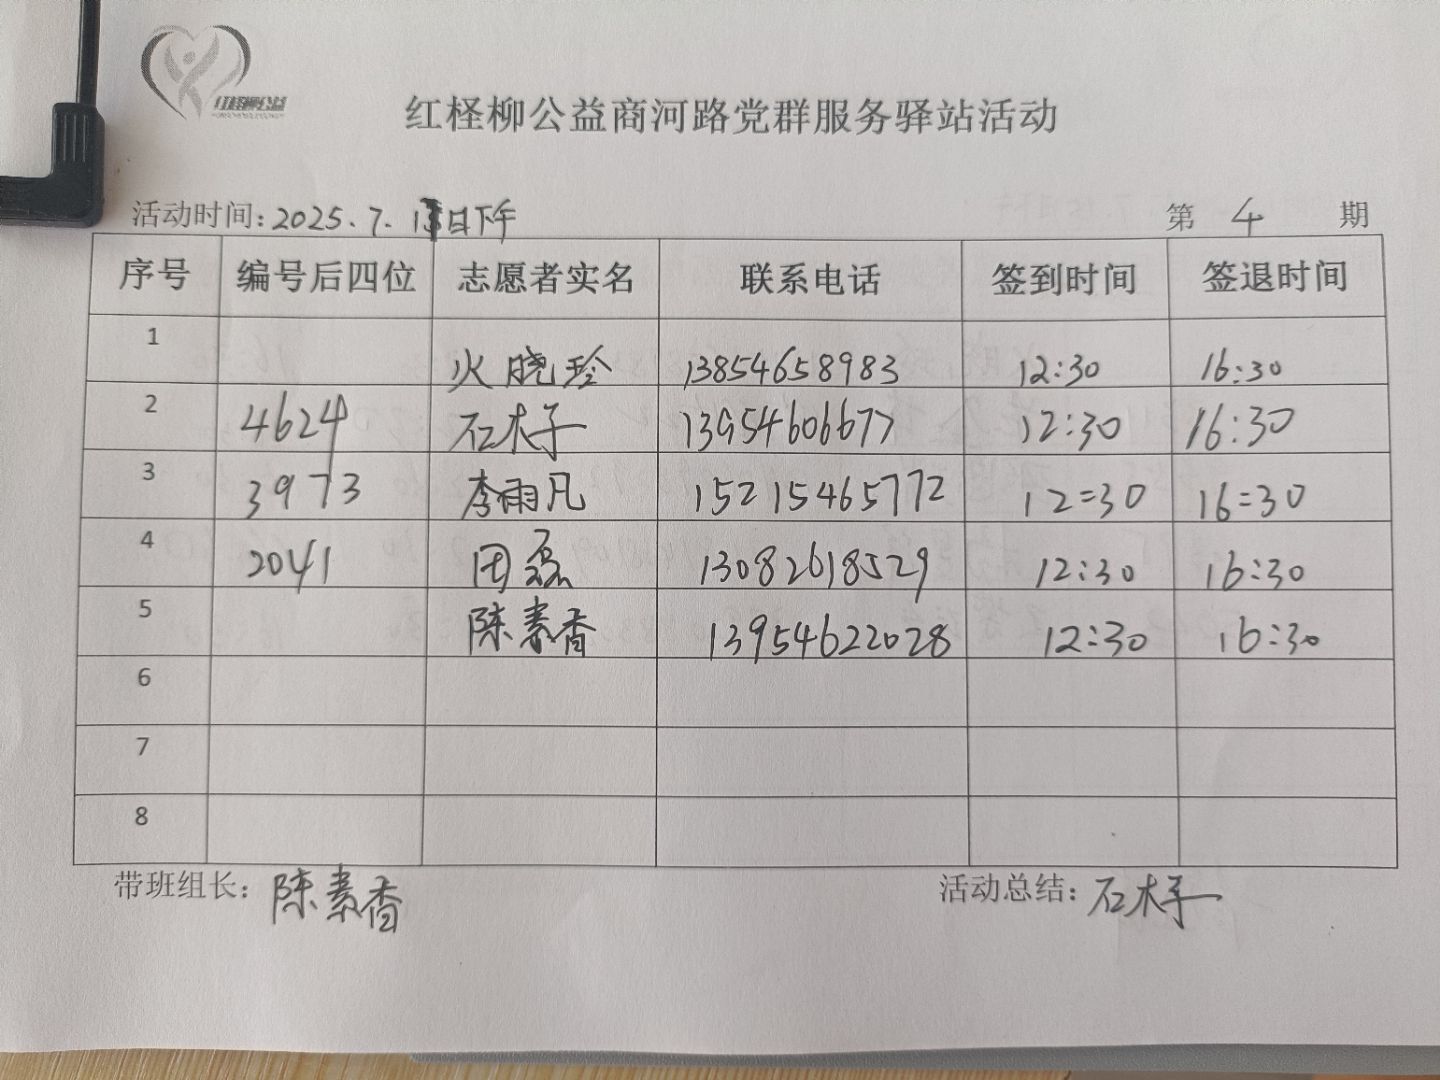 红柽柳公益
红柽柳公益商河路党群服务驿站活动
活动时间：2025.7.15日下午 第 4 期
序号 编号后四位 志愿者实名 联系电话 签到时间 签退时间
1 火晓玲 13854658983 12:30 16:30
2 4624 石木子 13954606677 12:30 16:30
3 3973 李雨凡 15215465772 12=30 16=30
4 2041 田磊 13082618529 12:30 16:30
5 陈素香 13954622028 12:30 16:30
6
7
8
带班组长：陈素香 活动总结：石木子